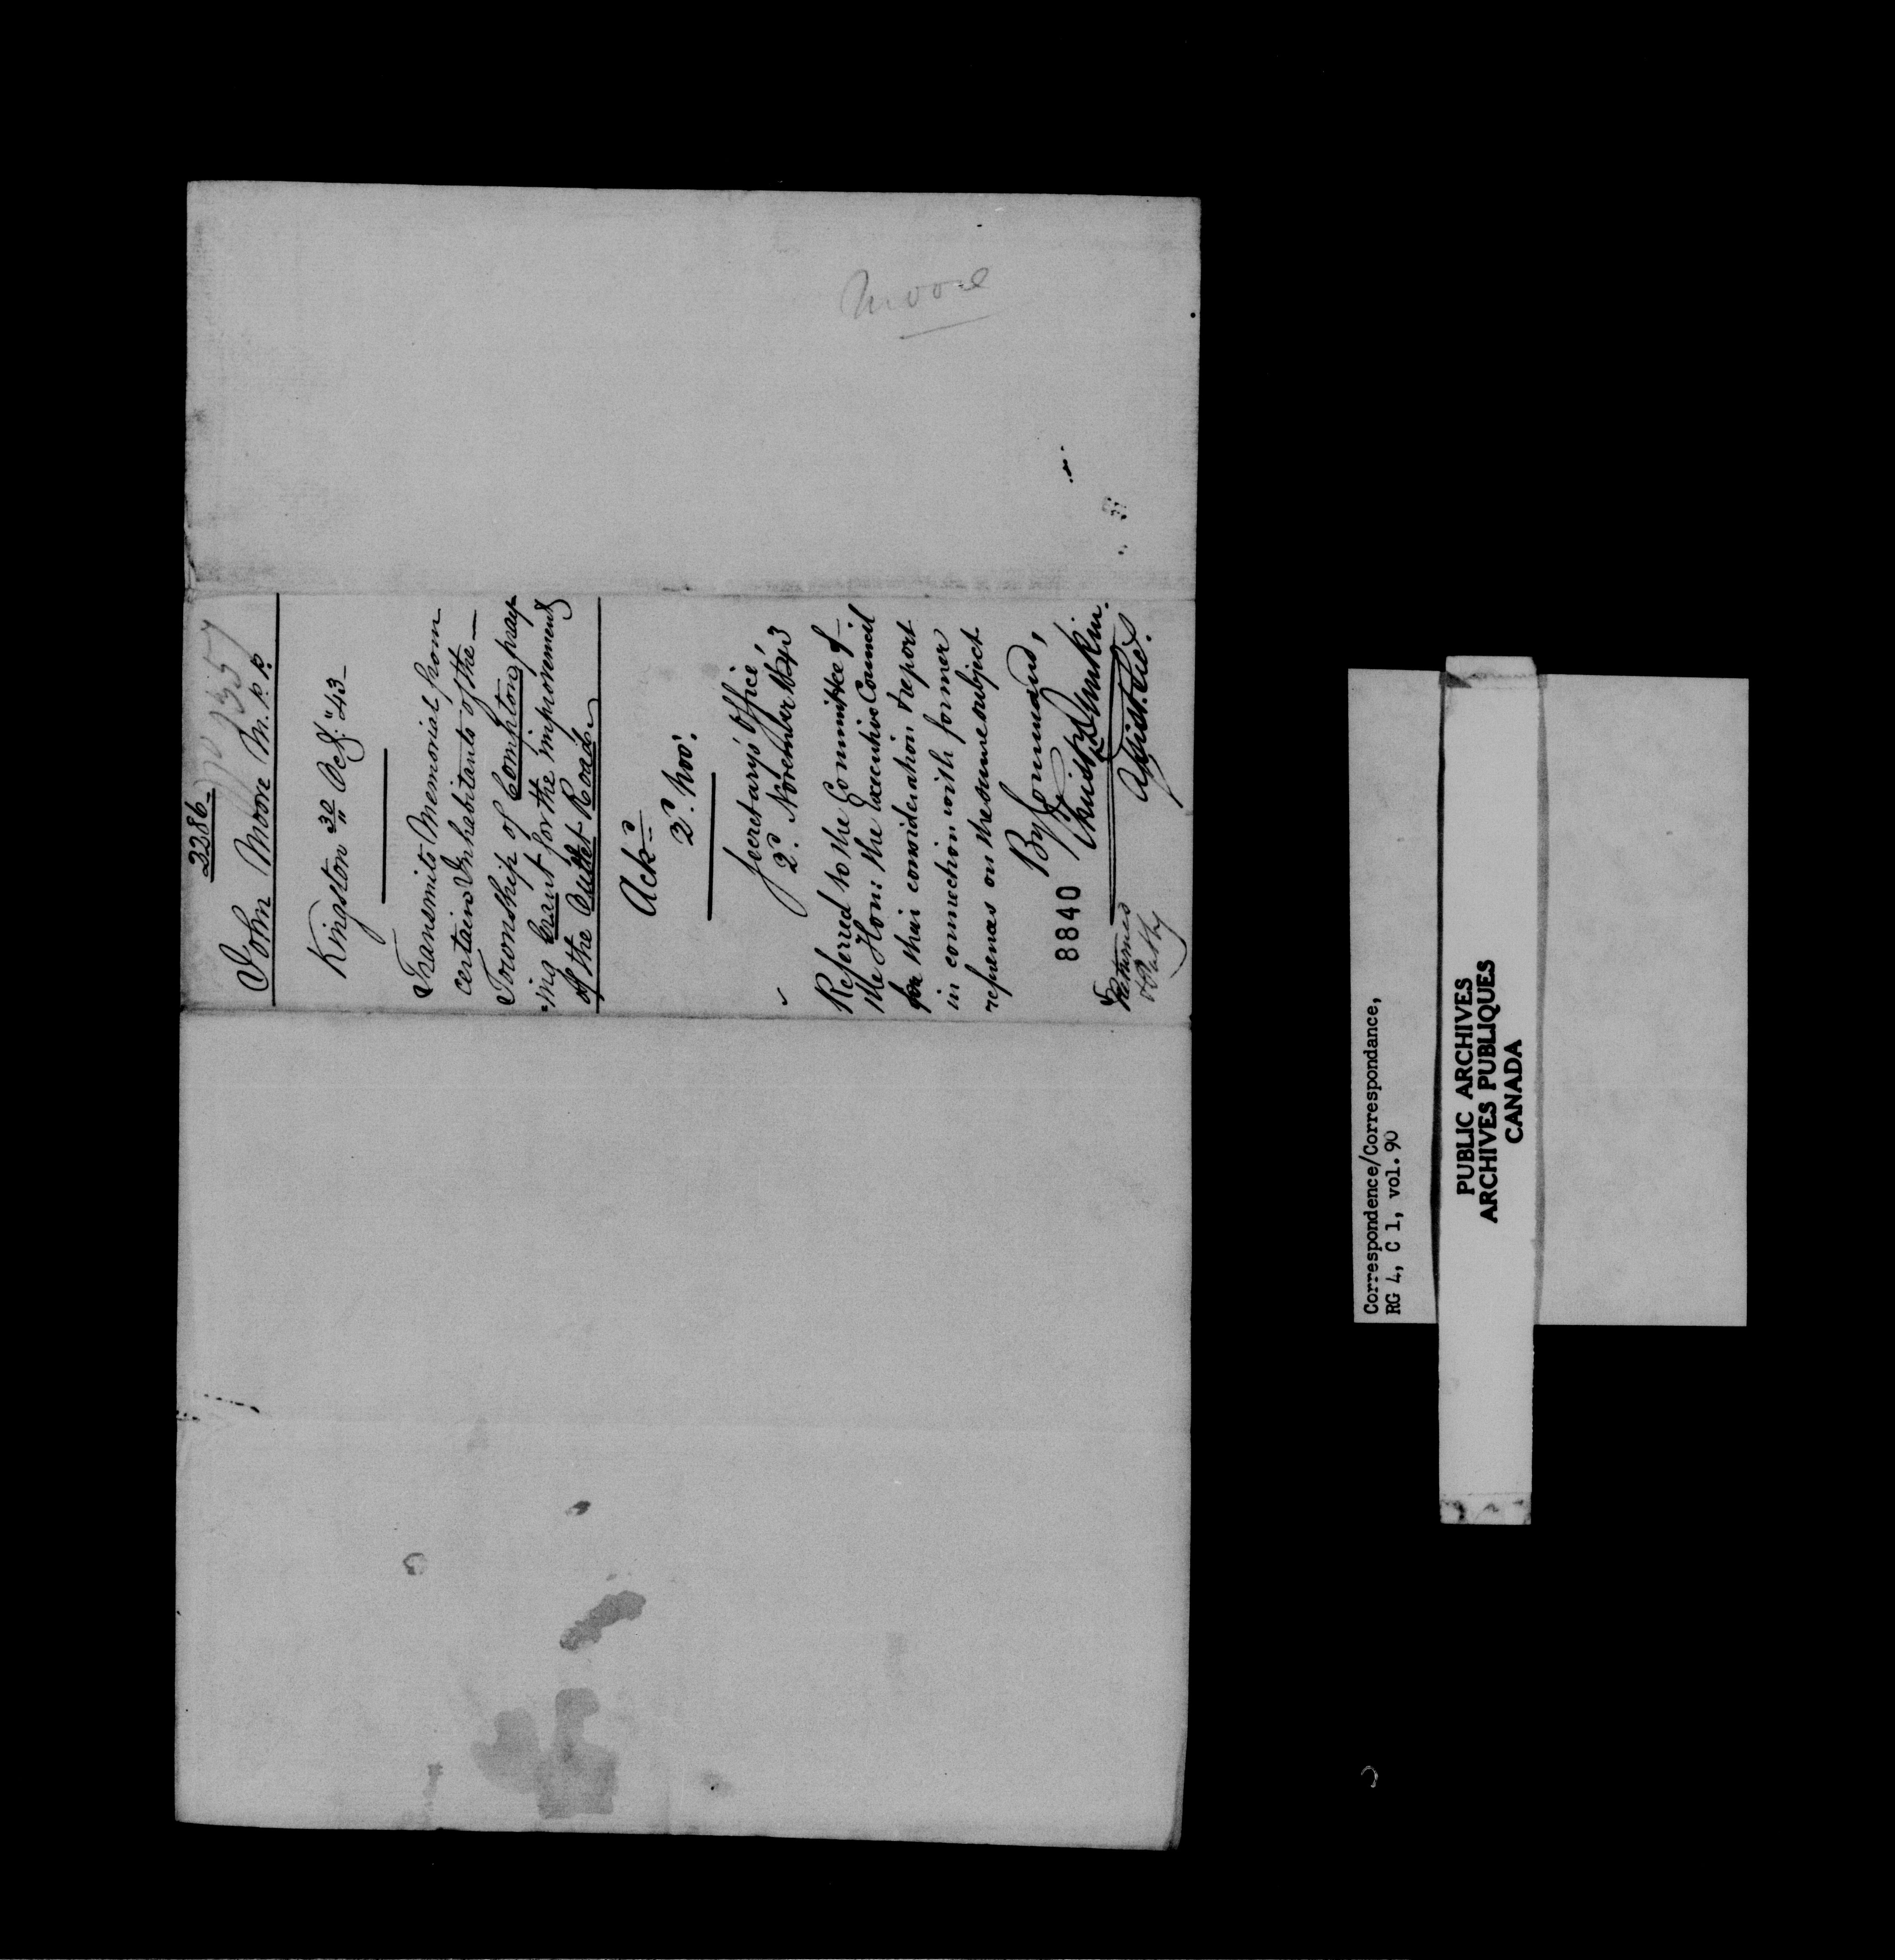 3286
John Moore M.P.P.
Kingston 30 Oct. "43
Transmits Memorial from
certain Inhabitants of the
Township of Compton, pray-
-ing Grant for the improvement
of the Outlet Road.
Ackd
2d. Nov.
Secretary's Office,
2d. November 1843
Referred to the Committee of
the Hon: the Executive Council
for their consideration & report
in connection with former
references on the same subject
By Command,
Dunkin.
Assist. Sec.
8840
Returned
Moore
Correspondence/Correspondance,
RG 4, C 1, vol.90
PUBLIC ARCHIVES
ARCHIVES PUBLIQUES
CANADA